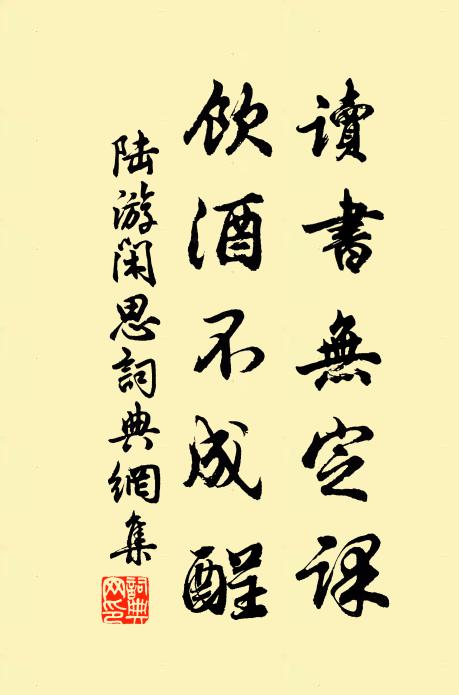 讀書無定課
飲酒不成醒
陸游閑思詞典網集
詞典網印